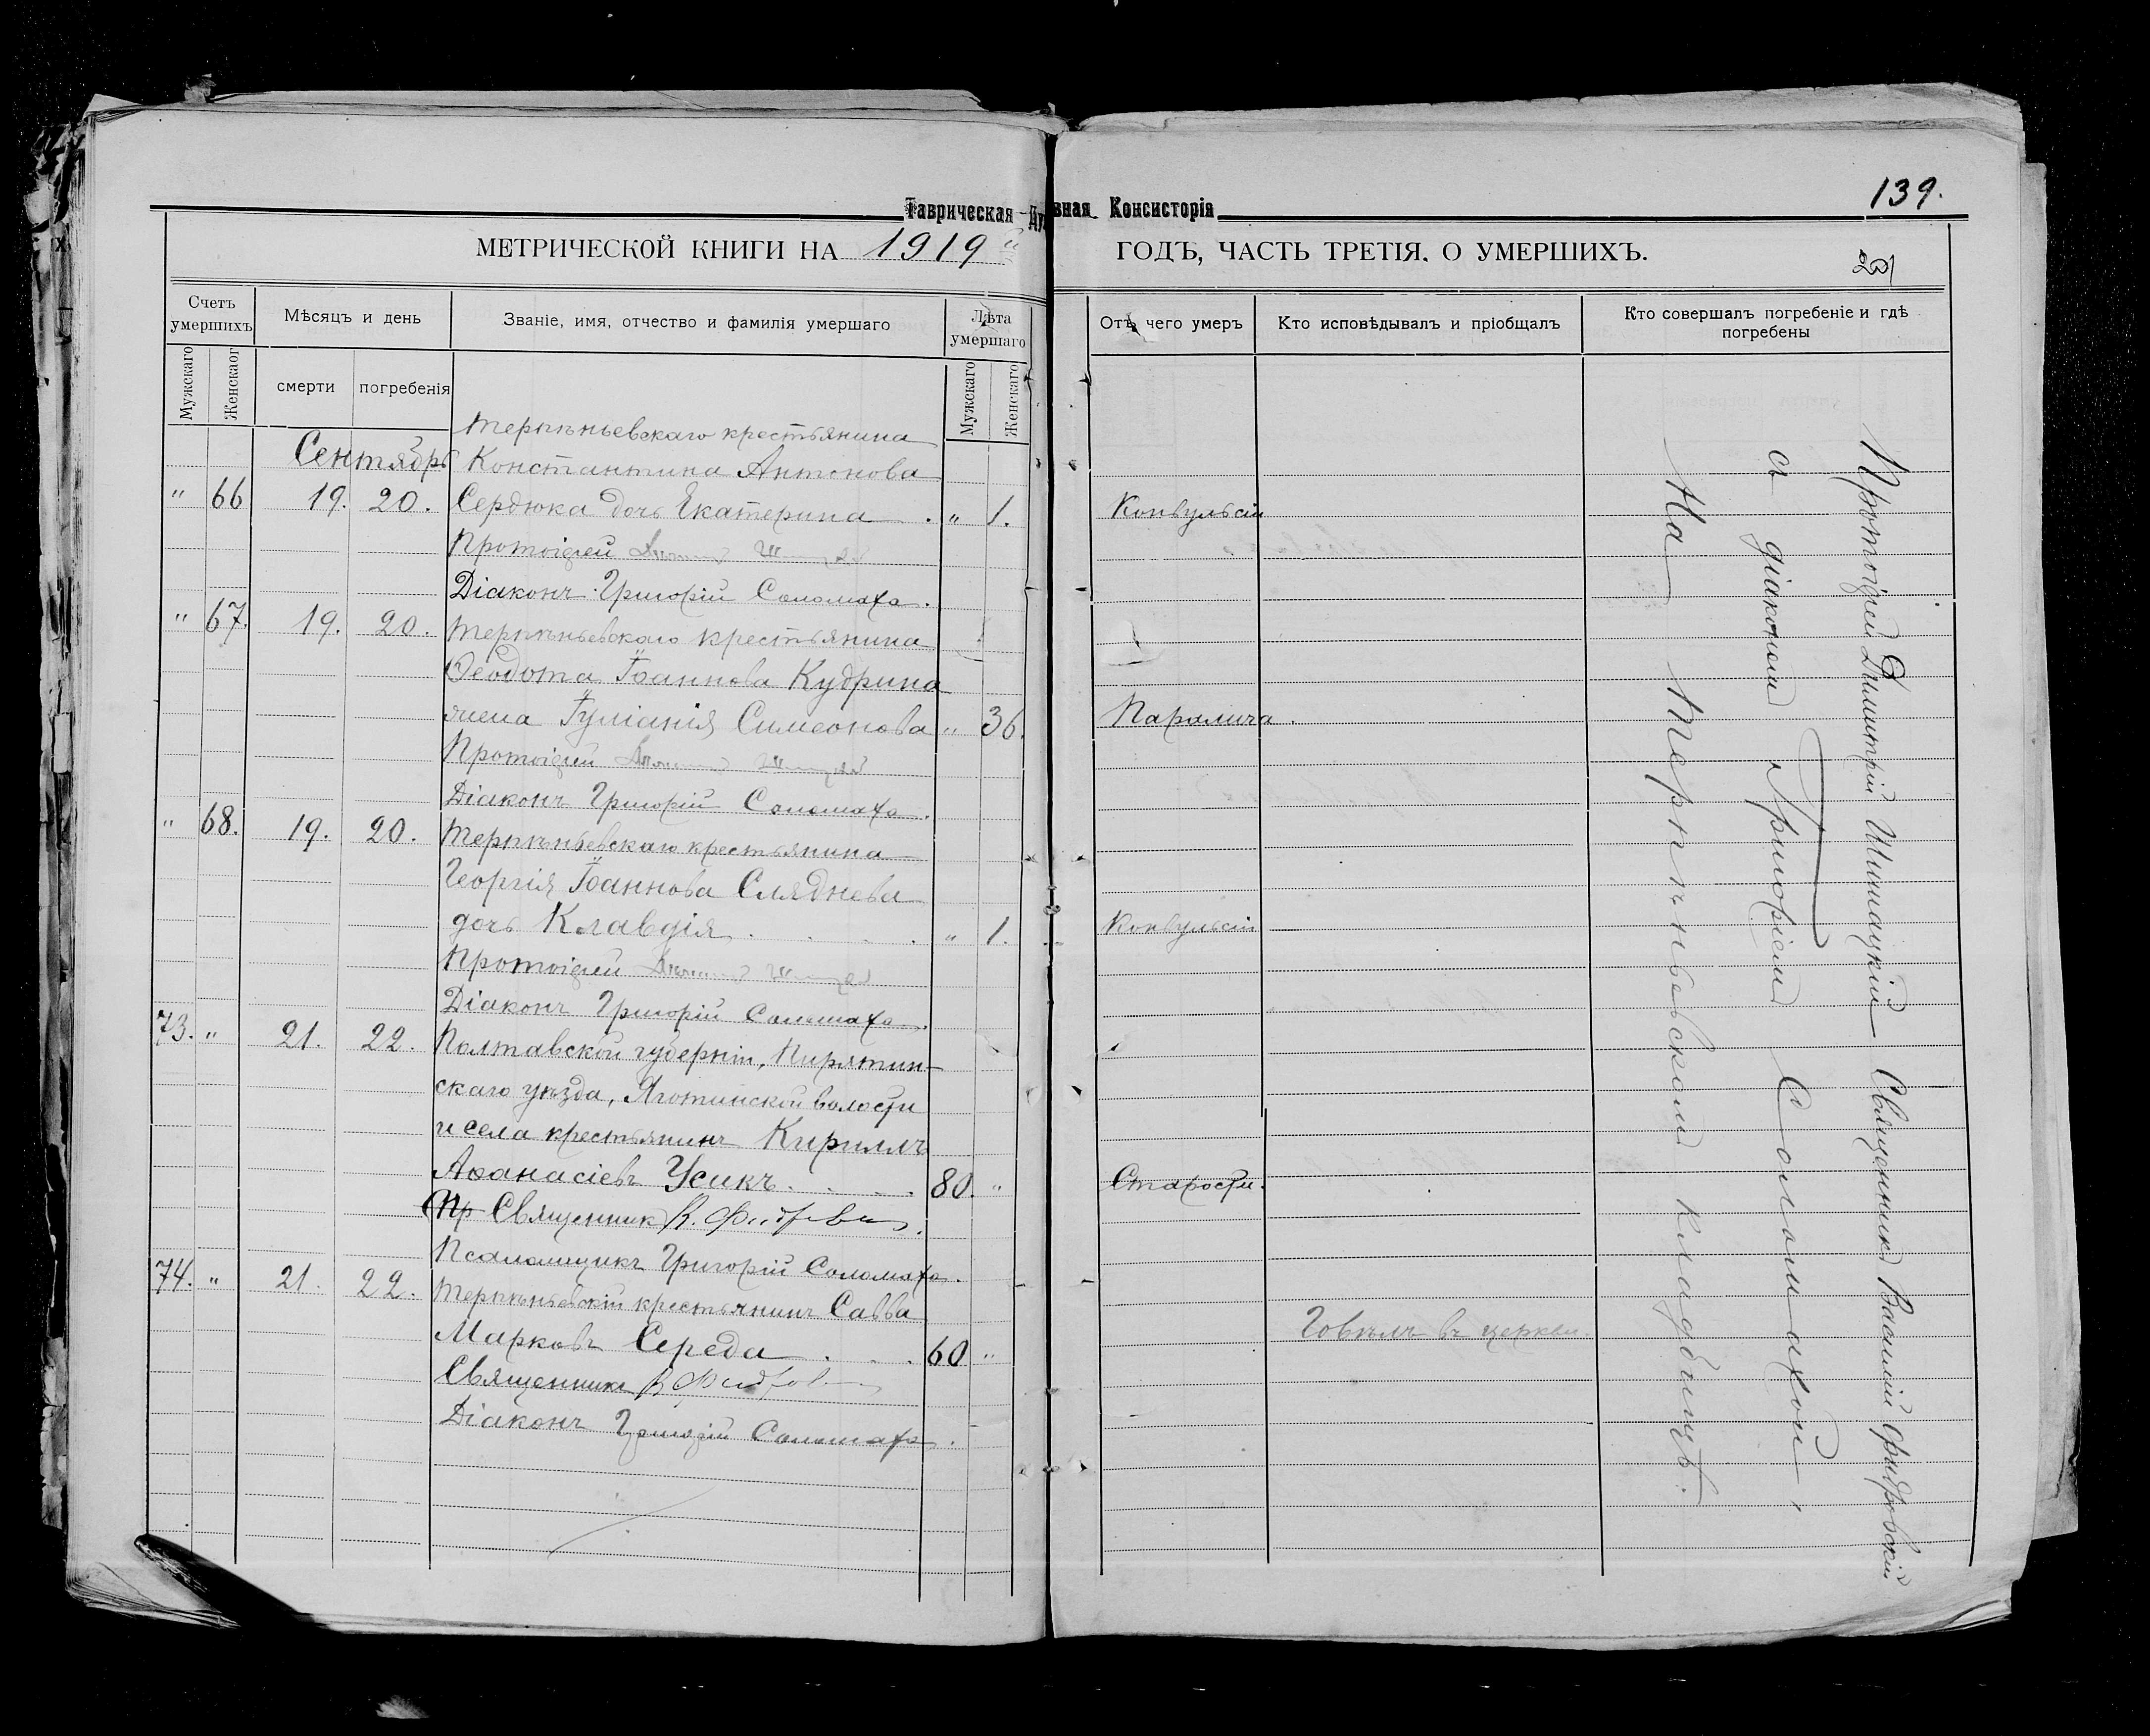 Таврическая Духовная Консисторія
139.
МЕТРИЧЕСКОЙ КНИГИ НА 1919 й ГОДЪ, ЧАСТЬ ТРЕТІЯ. О УМЕРШИХЪ.
Счетъ умершихъ
Мѣсяцъ и день
Званіе, имя, отчество и фамилія умершаго
Лѣта умершаго
Отъ чего умеръ
Кто исповѣдывалъ и пріобщалъ
Кто совершалъ погребеніе и гдѣ погребены
Мужскаго
Женскаго
смерти
погребенія
Мужскаго
Женскаго
Терпѣньевскаго крестьянина
Сентябрь Константина Антонова
" 66 19. 20. Сердюка дочь Екатерина . " 1. Конвульсіи
Протоіерей
Діаконъ Григорій Соломаха.
" 67. 19. 20. Терпѣньевскаго крестьянина
Ѳеодота Іоаннова Кудрина
жена Іуліанія Симеонова " 36. Паралича.
Протоіерей
Діаконъ Григорій Соломаха.
" 68. 19. 20. Терпѣньевскаго крестьянина
Георгія Іоаннова Сляднева
дочь Клавдія . . . . " 1. Конвульсіи
Протоіерей
Діаконъ Григорій Соломаха.
73. " 21. 22. Полтавской губерніи, Пирятин-
скаго уѣзда, Яготинской волости
и села крестьянинъ Кириллъ
Аѳанасіевъ Усикъ. . . . 80. " Старости.
Пр Священникъ В.
Псаломщикъ Григорій Соломаха.
74. " 21. 22. Терпѣньевскій крестьянинъ Савва
Марковъ Середа . . . 60 " Говѣлъ въ церкви
Священникъ В
Діаконъ Григорій Соломаха.
Протоіерей Димитрій Шишацкій Священникъ Василій
съ діакономъ Григоріемъ Соломахой,
На Терпѣньевскомъ кладбищѣ.